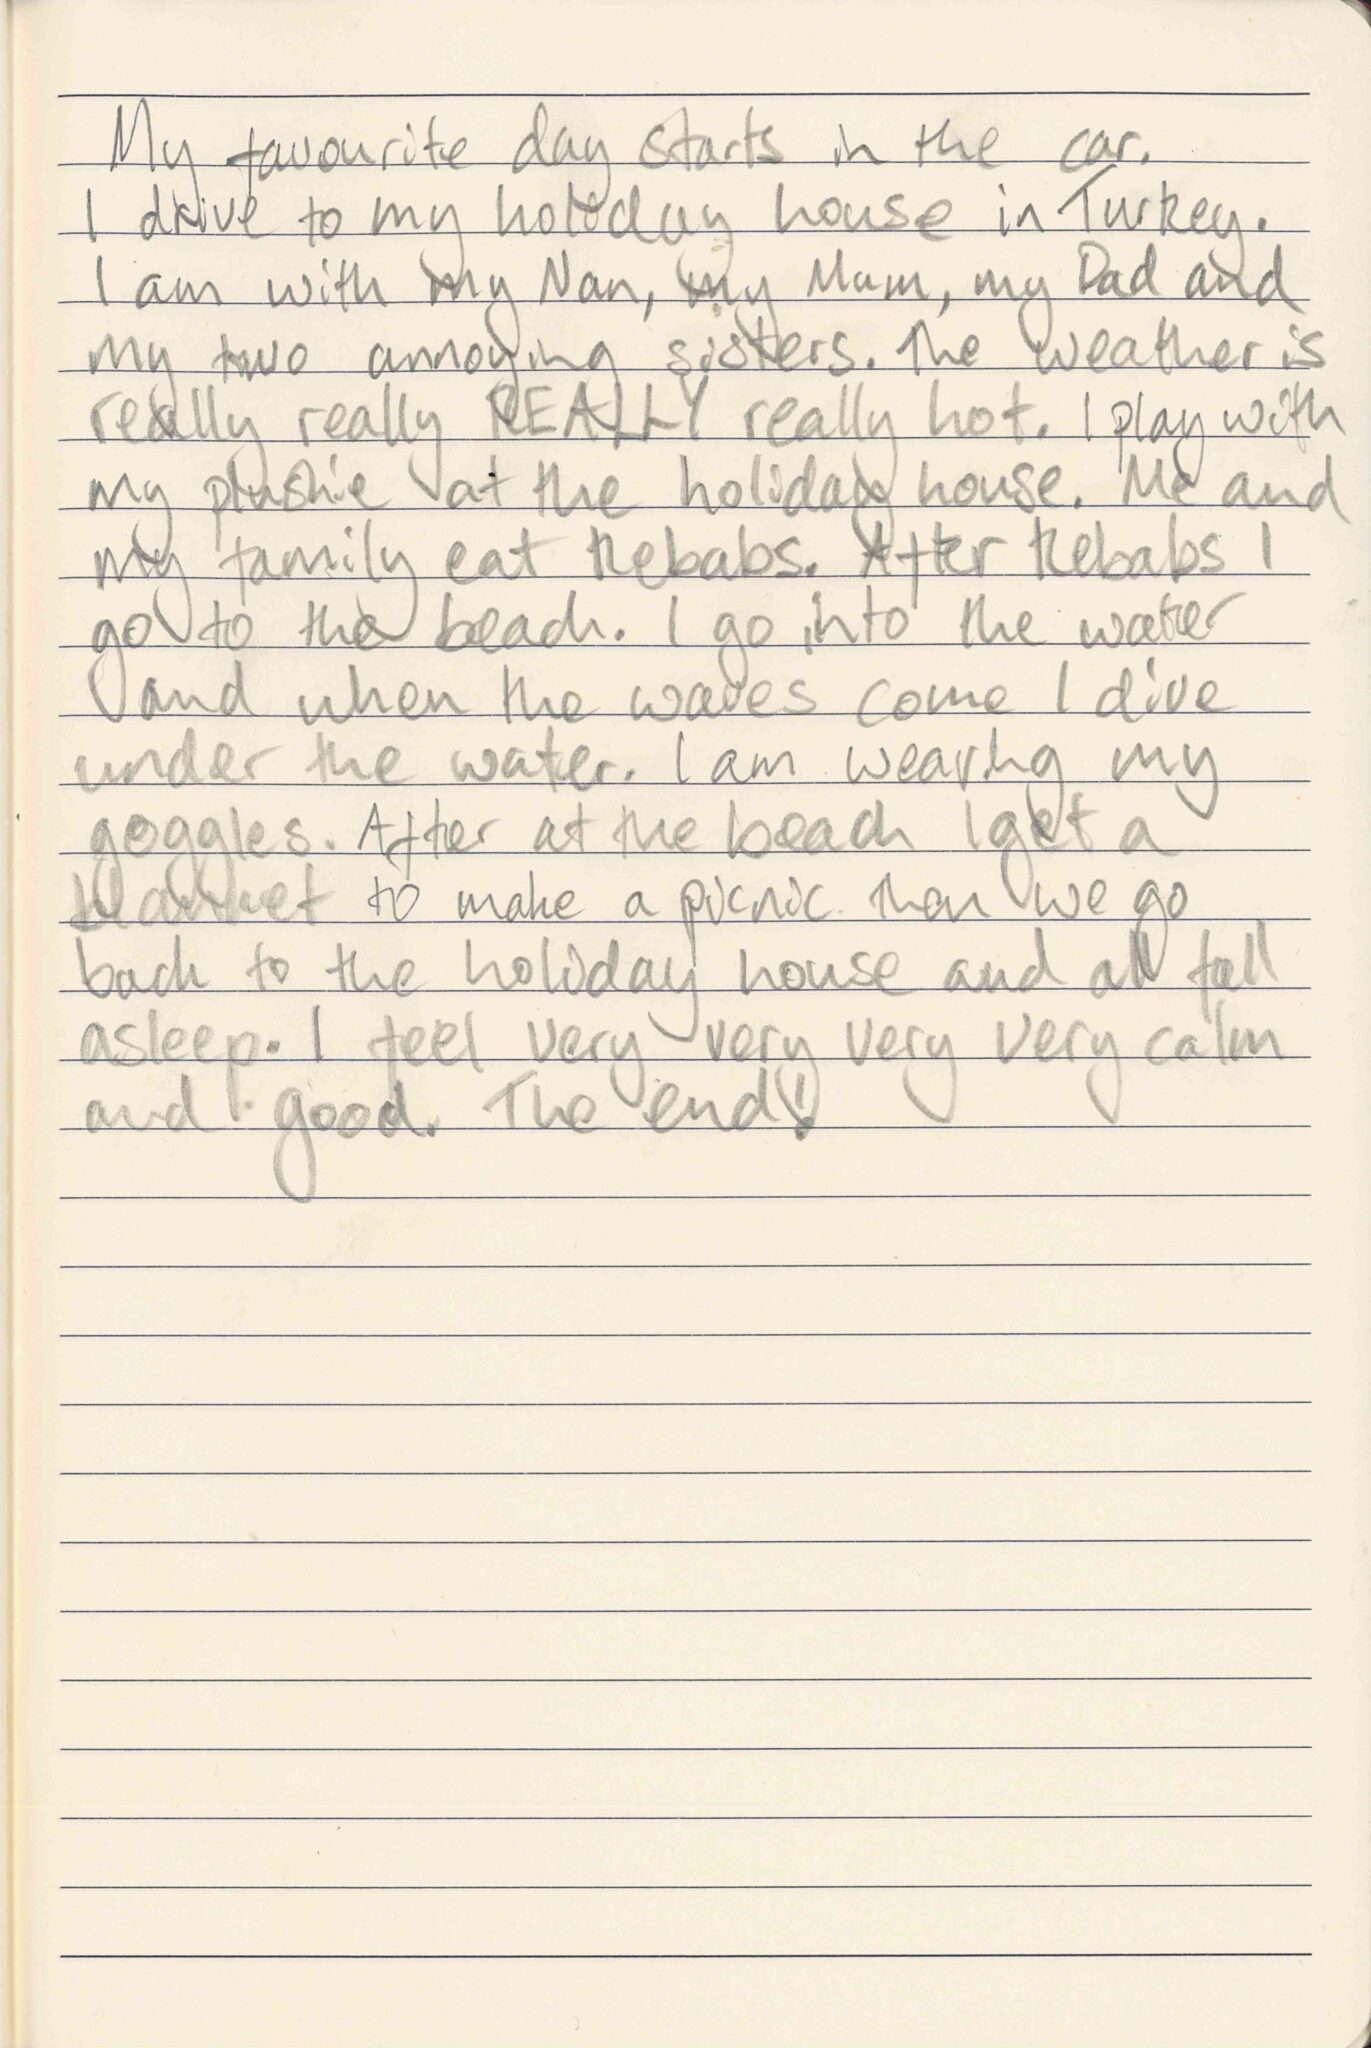 My favourite day starts in the car.
I drive to my holiday house in Turkey.
I am with my Nan, my Mum, my Dad and
my two annoying sisters. The weather is
really really REALLY really hot. I play with
my plushie at the holiday house. Me and
my family eat Kebabs. After Kebabs I
go to the beach. I go into the water
and when the waves come I dive
under the water. I am wearing my
goggles. After at the beach I get a
blanket to make a picnic. Then we go
back to the holiday house and all fall
asleep. I feel very very very very calm
and good. The end!